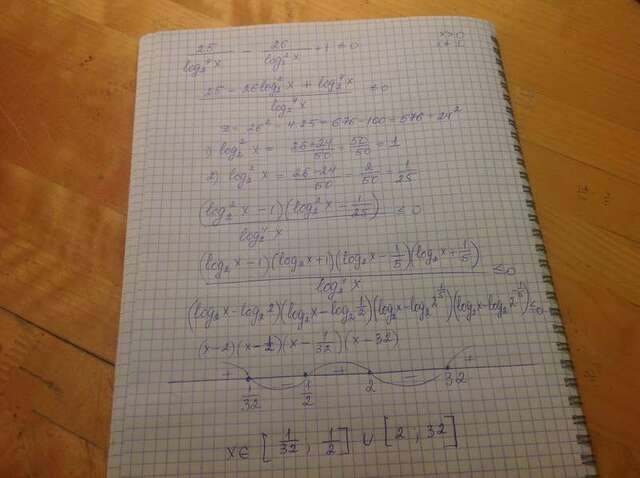 25/log₂⁴x - 26/log₂²x + 1 ≤ 0
x>0
(25 - 26log₂²x + log₂⁴x)/log₂⁴x ≤ 0
D = 26² - 4·25 = 676 - 100 = 576 = 24²
1) log₂²x = (26+24)/50 = 50/50 = 1
2) log₂²x = (26-24)/50 = 2/50 = 1/25
(log₂²x - 1)(log₂²x - 1/25)/log₂⁴x ≤ 0
(log₂x - 1)(log₂x + 1)(log₂x - 1/5)(log₂x + 1/5)/log₂⁴x ≤ 0
(log₂x - log₂2)(log₂x - log₂1/2)(log₂x - log₂2^(1/5))(log₂x - log₂2^(-1/5)) ≤ 0
(x-2)(x-1/2)(x-1/32)(x-32)
+ - + - +
1/32 1/2 2 32
x∈[1/32; 1/2] ∪ [2; 32]